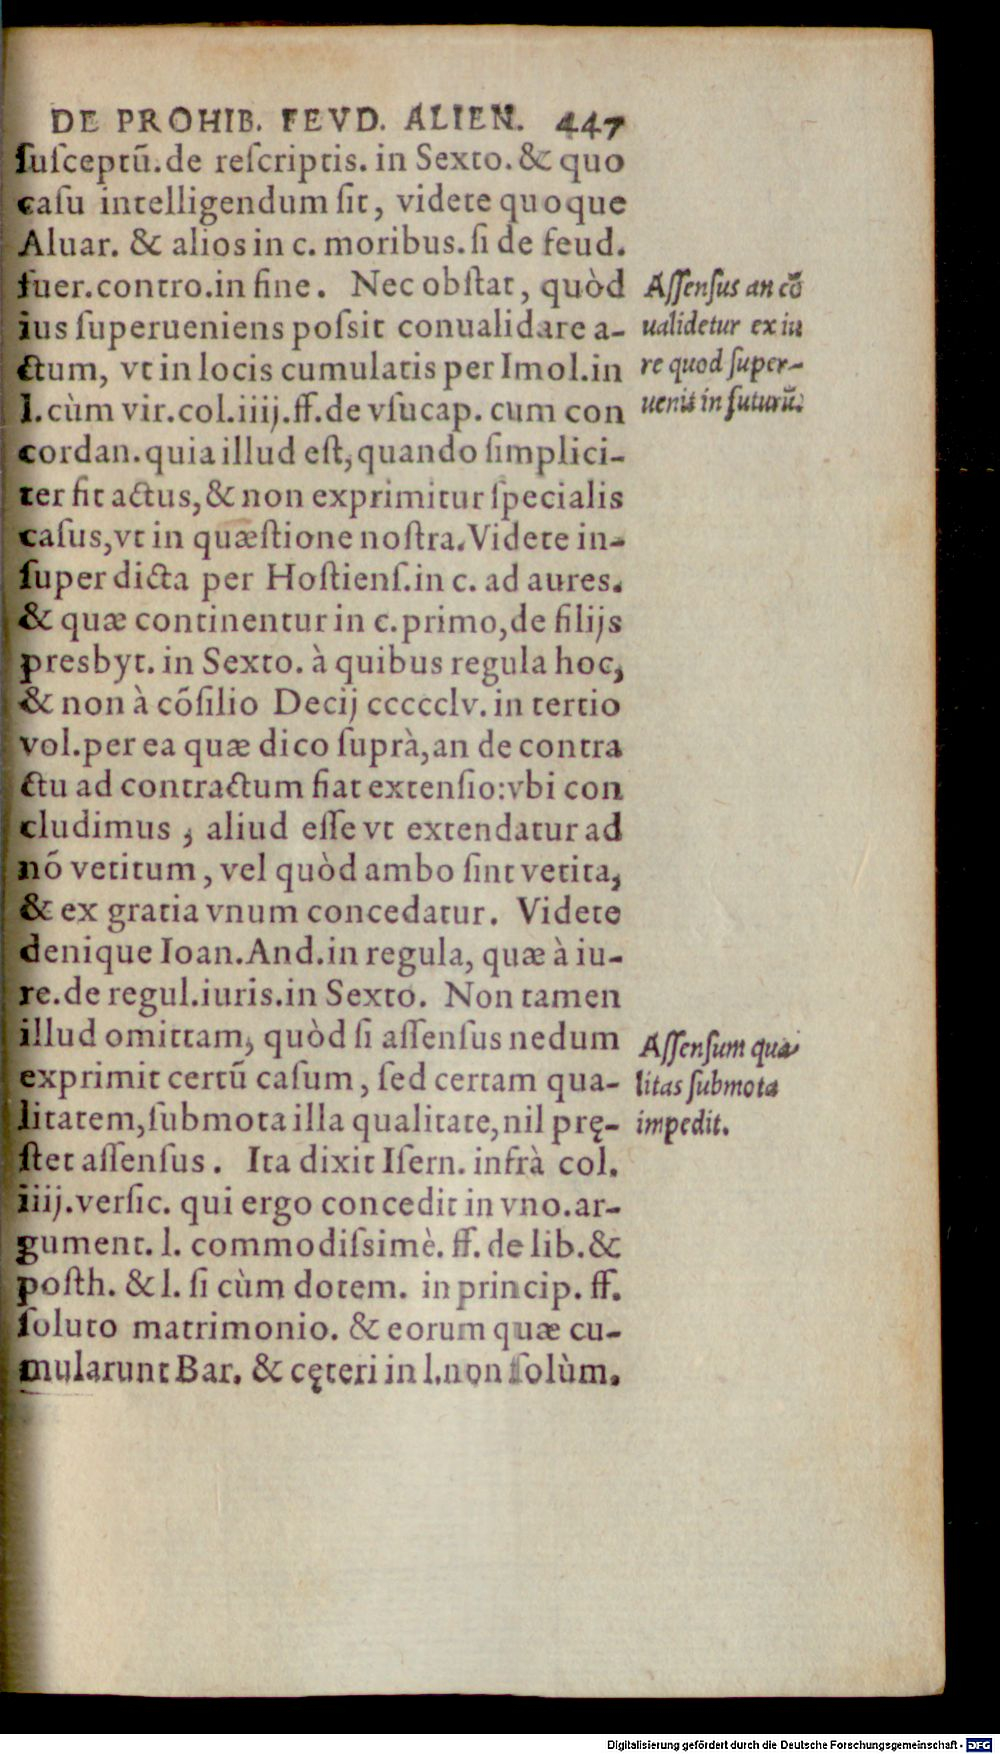 DE PROHIB. FEVD. ALIEN. 447
ſuſceptũ.de reſcriptis. in Sexto. & quo
caſu intelligendum ſit, videte quoque
Aluar. & alios in c. moribus. ſi de feud.
fuer.contro.in fine. Nec obſtat, quòd
ius ſuperueniens poſsit conualidare a-
ctum, vt in locis cumulatis per Imol.in
l.cùm vir.col.iiij.ff.de vſucap. cum con
cordan.quia illud eſt, quando ſimplici-
ter fit actus, & non exprimitur ſpecialis
caſus, vt in quæſtione noſtra. Videte in-
ſuper dicta per Hoſtienſ.in c. ad aures.
& quæ continentur in c.primo, de filijs
presbyt. in Sexto. à quibus regula hoc,
& non à cõſilio Decij ccccclv. in tertio
vol.per ea quæ dico ſuprà, an de contra
ctu ad contractum fiat extenſio: vbi con
cludimus, aliud eſſe vt extendatur ad
nõ vetitum, vel quòd ambo ſint vetita,
& ex gratia vnum concedatur. Videte
denique Ioan.And.in regula, quæ à iu-
re.de regul.iuris.in Sexto. Non tamen
illud omittam, quòd ſi aſſenſus nedum
exprimit certũ caſum, ſed certam qua-
litatem, ſubmota illa qualitate, nil prę-
ſtet aſſenſus. Ita dixit Iſern. infrà col.
iiij.verſic. qui ergo concedit in vno.ar-
gument. l. commodiſsimè. ff. de lib. &
poſth. & l. ſi cùm dotem. in princip. ff.
ſoluto matrimonio. & eorum quæ cu-
mularunt Bar. & cęteri in l.non ſolùm.
Aſſenſus an cõ
ualidetur ex iu
re quod ſuper-
uenit in futurũ.
Aſſenſum qua
litas ſubmota
impedit.
Digitalisierung gefördert durch die Deutsche Forschungsgemeinschaft - DFG